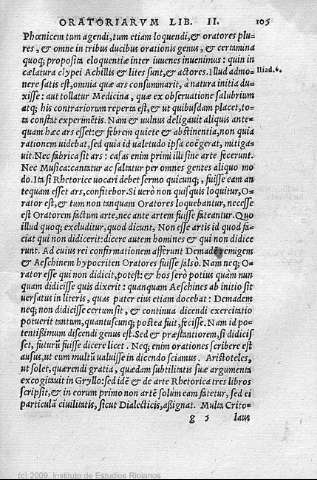 ORATORIARVM LIB. II. 105
Phœnicem tum agendi, tum etiam loquendi, & oratores plu-
res, & omne in tribus ducibus orationis genus, & certamina
quoq; proposita eloquentiæ inter iuuenes inuenimus: quin in
cælatura clypei Achillis & lites sunt, & actores. Illud admo-
Iliad. 6.
nere satis est, omnia quæ ars consummarit, à natura initia du-
xisse: aut tollatur Medicina, quæ ex obseruatione salubrium
atq; his contrariorum reperta est, & ut quibusdam placet, to-
ta constat experimẽtis. Nam & uulnus deligauit aliquis ante-
quam hæc ars esset: & febrem quiete & abstinentia, non quia
rationem uidebat, sed quia id ualetudo ipsa coëgerat, mitiga-
uit. Nec fabrica sit ars: casas enim primi illi sine arte fecerunt.
Nec Musica: cantatur ac saltatur per omnes gentes aliquo mo-
do. Ita si Rhetorice uocari debet sermo quicunq;, fuisse eam an
tequam esset ars, confitebor. Si uerò non quisquis loquitur, O-
rator est, & tum non tanquam Oratores loquebantur, necesse
est Oratorem factum arte, nec ante artem fuisse fateantur. Quo
illud quoq; excluditur, quod dicunt. Non esse artis id quod fa-
ciat qui non didicerit: dicere autem homines & qui non didice
rint. Ad cuius rei confirmationem afferunt Demadẽ remigem
& Aeschinem hypocriten Oratores fuisse. falsò. Nam neq; O-
rator esse qui non didicit, potest: & hos serò potius quàm nun
quam didicisse quis dixerit: quanquam Aeschines ab initio sit
uersatus in literis, quas pater eius etiam docebat: Demadem
neq; non didicisse certum sit, & continua dicendi exercitatio
potuerit tantum, quantuscunq; postea fuit, fecisse. Nam id po-
tentissimum discendi genus est. Sed & præstantiorem, si didicis
set, futurũ fuisse dicere licet. Neq; enim orationes scribere est
ausus, ut eum multũ ualuisse in dicendo sciamus. Aristoteles,
ut solet, quærendi gratia, quædam subtilitatis suæ argumenta
excogitauit in Gryllo: sed idẽ & de arte Rhetorica tres libros
scripsit, & in eorum primo non artẽ solum eam fatetur, sed ei
particulã ciuilitatis, sicut Dialectices, assignat. Multa Crito-
g 5 laus
(c) 2009. Instituto de Estudios Riojanos